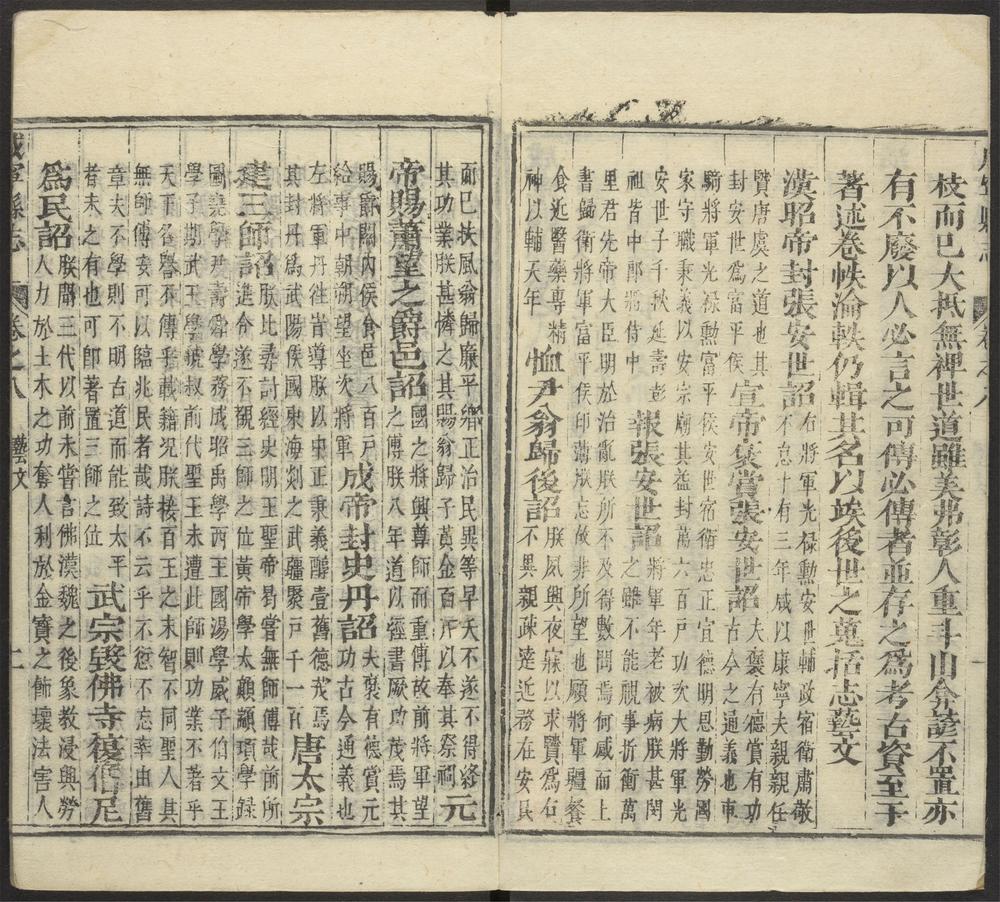 枝而已大抵無裨世道雖美弗彰人重斗山僉諺不置亦
有不廢以人必言之可傳必傳者並存之為考古資至于
著述卷帙淪軼仍輯其名以竢後世之蒐括志藝文
漢昭帝封張安世詔右將軍光祿勲安世輔政宿衛肅敬不怠十有三年咸以康寧夫親親任
賢唐虞之道也其封安世為富平侯 宣帝褒賞張安世詔夫褒有德賞有功古今之通義也車
騎將軍光祿勲富平侯安世宿衛忠正宜德明恩勤勞國
家守職秉義以安宗廟其益封萬六百戶功次大將軍光
安世子千秋延壽彭祖皆中郎將侍中 報張安世詔將軍年老被病朕甚閔之雖不能視事折衝萬
里君先帝大臣明於治亂朕所不及得數問焉何感而上
書歸衛將軍富平侯印薄朕忘故非所望也願將軍疆餐
食近醫藥專精神以輔天年 恤尹翁歸後詔朕夙興夜寐以求賢為右不異親疎遠近務在安民
而已扶風翁歸廉平鄉正治民異等早夭不遂不得終
其功業朕甚憐之其賜翁歸子黃金百斤以奉其祭祠 元
帝賜蕭望之爵邑詔國之將興尊師而重傅故前將軍望之傅朕八年道以經書厥功茂焉其
賜爵關內侯食邑八百戶給事中朝朔望坐次將軍 成帝封史丹詔夫褒有德賞元功古今通義也
左將軍丹往昔導朕以中正秉義醇壹舊德茂焉
其封丹為武陽侯國東海剡之武疆聚戶千一百 唐太宗
建三師詔朕比尋討經史明王聖帝曷嘗無師傅哉前所進令遂不覩三師之位黃帝學太顛顓頊學録
圖堯學尹壽舜學務成昭禹學西王國湯學威子伯文王
學子期武王學虢叔前代聖王未遭此師則功業不著乎
天下名譽不傳乎載籍況朕接百王之末智不同聖人其
無師傅安可以臨兆民者哉詩不云乎不愆不忘率由舊
章夫不學則不明古道而能致太平者未之有也可即著置三師之位 武宗毀佛寺復僧尼
為民詔朕聞三代以前未嘗言佛漢魏之後象教浸興勞人力於土木之功奪人利於金寶之飾壞法害人
咸寧縣志 卷之八 藝文 二